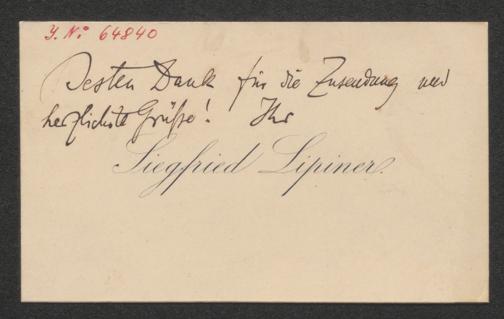 J. N: 64840
Besten Dank für die Zusendung und
herzlichste Grüße! Ihr
Siegfried Lipiner.